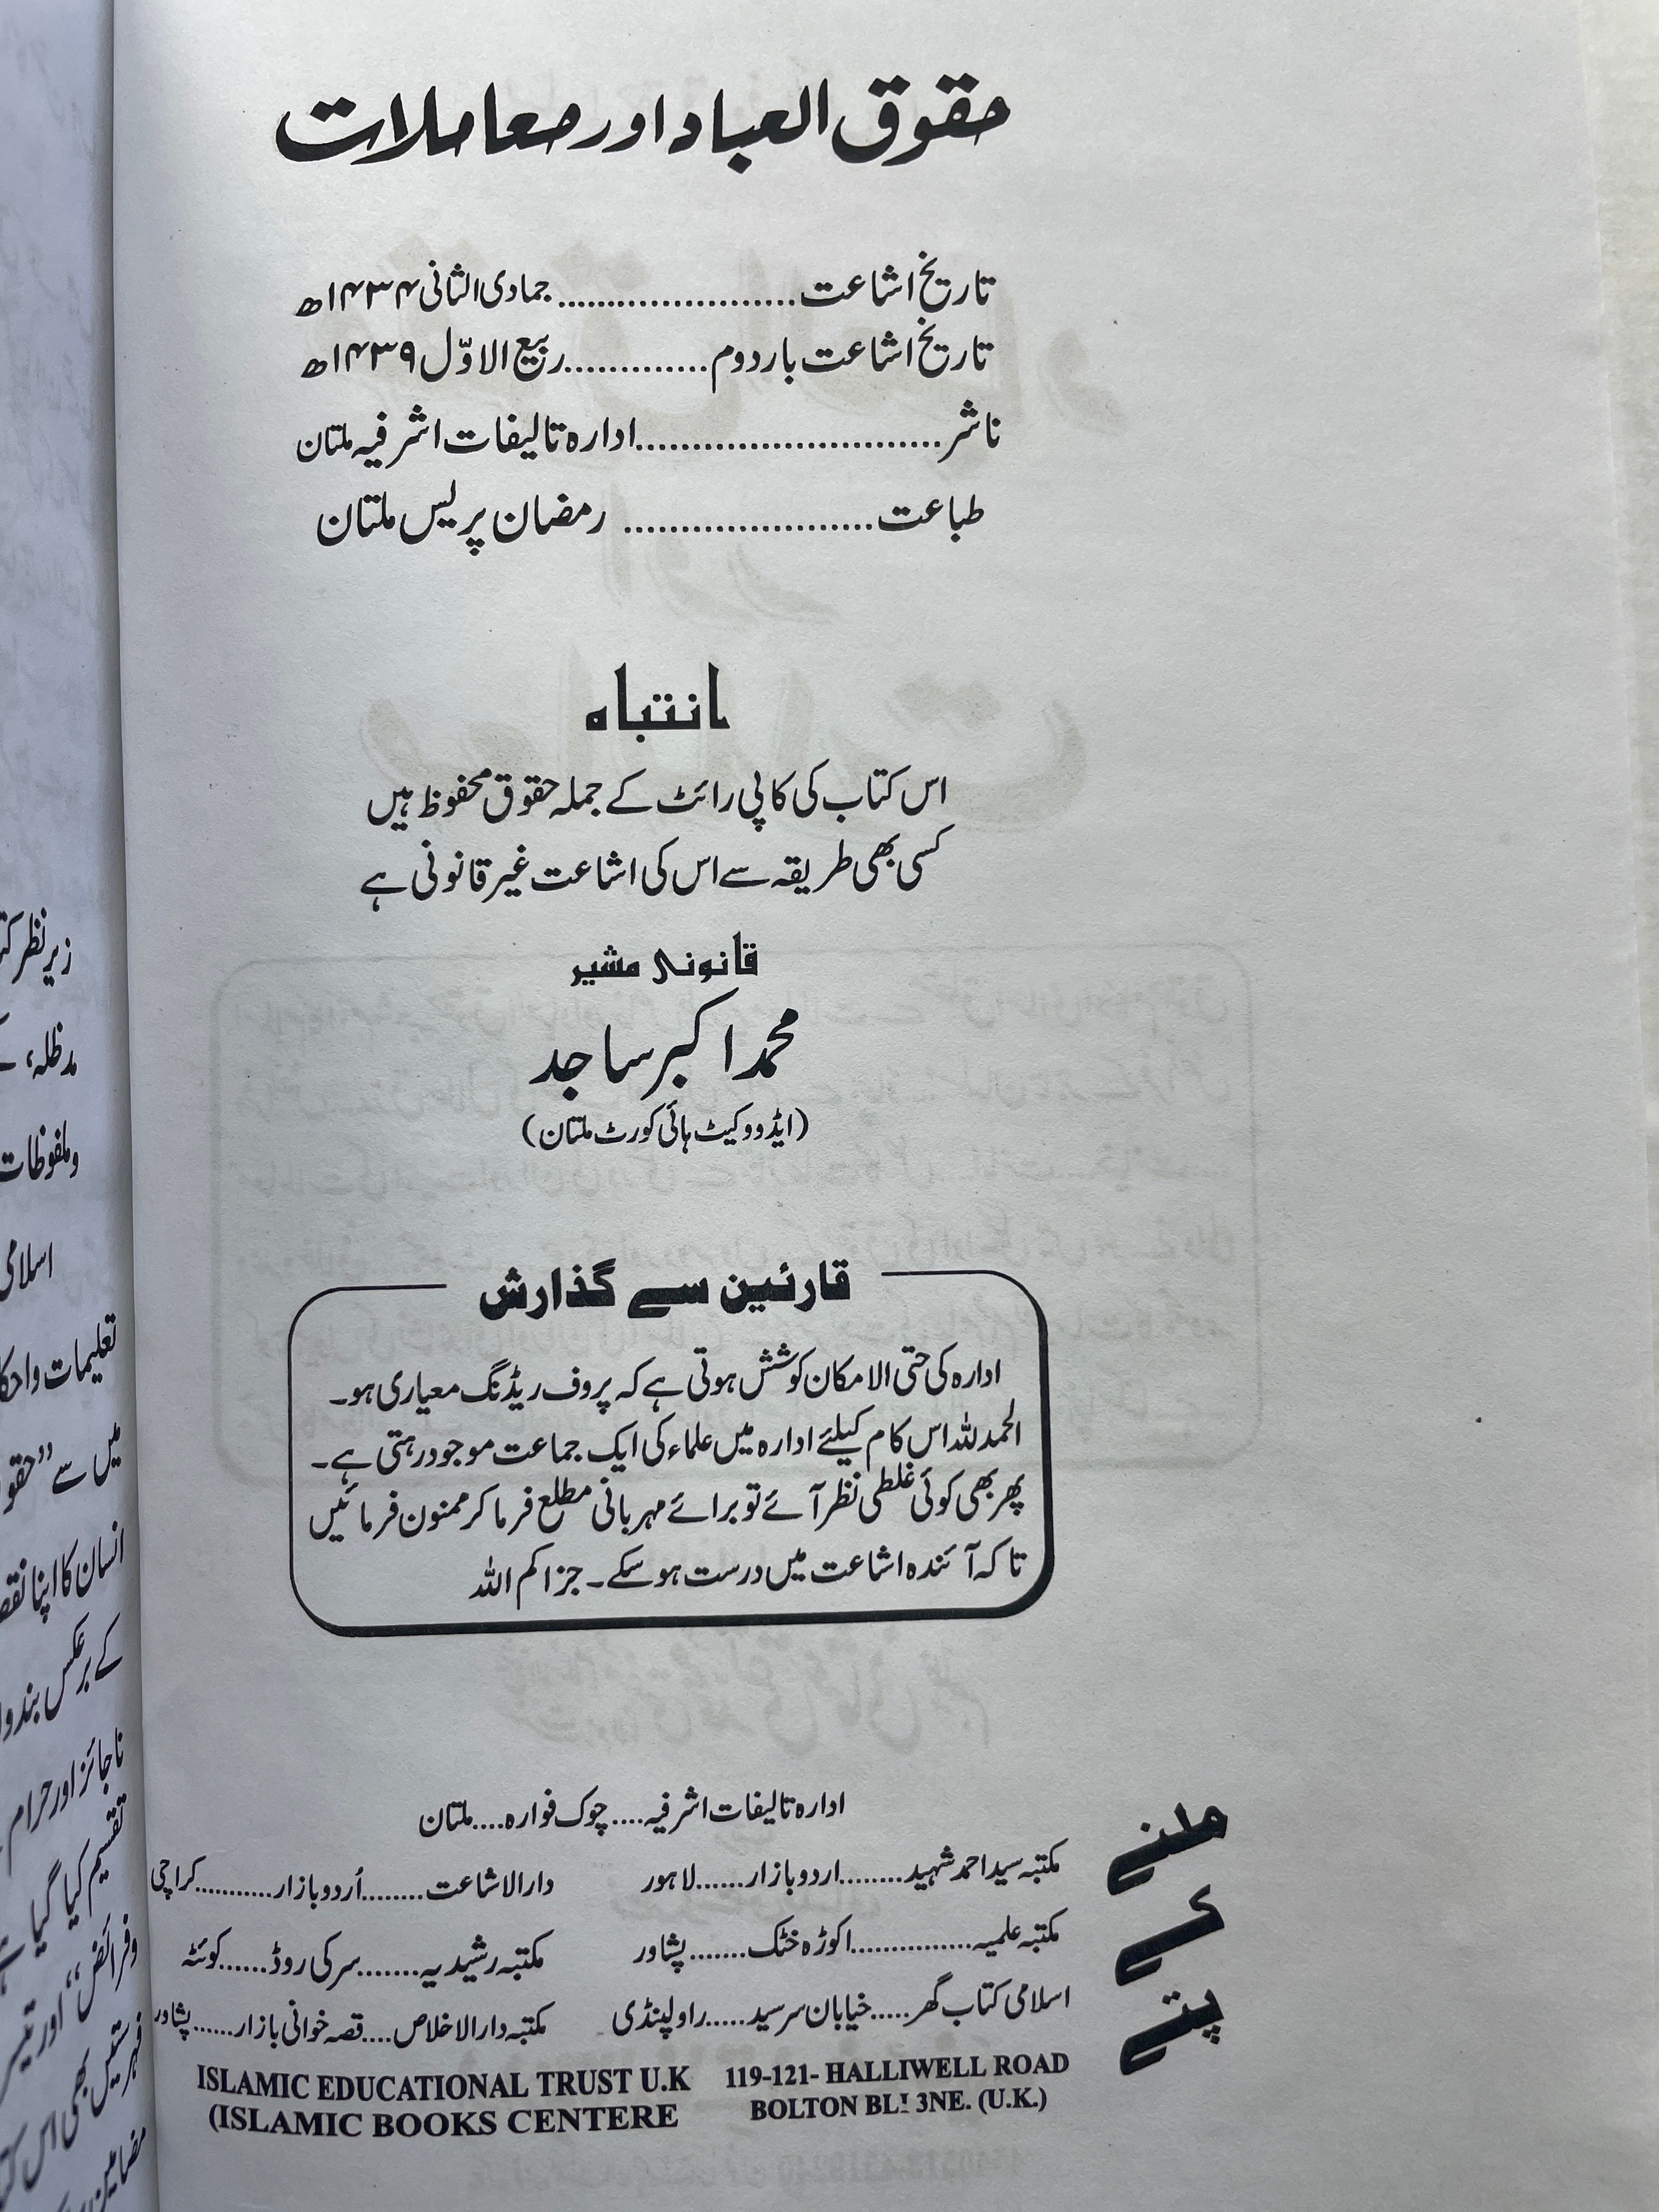 حقوق العباد اور معاملات
تاریخ اشاعت......................جمادی الثانی ۱۴۳۴ھ
تاریخ اشاعت بار دوم.............ربیع الاوّل ۱۴۳۹ھ
ناشر............................ادارہ تالیفات اشرفیہ ملتان
طباعت....................... رمضان پریس ملتان
انتباہ
اس کتاب کی کاپی رائٹ کے جملہ حقوق محفوظ ہیں
کسی بھی طریقہ سے اس کی اشاعت غیر قانونی ہے
قانونی مشیر
محمد اکبر ساجد
(ایڈووکیٹ ہائی کورٹ ملتان)
قارئین سے گذارش
ادارہ کی حتی الامکان کوشش ہوتی ہے کہ پروف ریڈنگ معیاری ہو۔
الحمدللہ اس کام کیلئے ادارہ میں علماء کی ایک جماعت موجود رہتی ہے۔
پھر بھی کوئی غلطی نظر آئے تو برائے مہربانی مطلع فرما کر ممنون فرمائیں
تاکہ آئندہ اشاعت میں درست ہو سکے۔ جزاکم اللہ
ملنے
کے
پتے
ادارہ تالیفات اشرفیہ....چوک فوارہ....ملتان
مکتبہ سید احمد شہید........اردو بازار......لاہور
دارالاشاعت........اُردو بازار...........کراچی
مکتبہ علمیہ...............اکوڑہ خٹک.......پشاور
مکتبہ رشیدیہ.......سرکی روڈ......کوئٹہ
اسلامی کتاب گھر.....خیابان سرسید.....راولپنڈی
مکتبہ دارالاخلاص....قصہ خوانی بازار......پشاور
ISLAMIC EDUCATIONAL TRUST U.K
(ISLAMIC BOOKS CENTERE
119-121- HALLIWELL ROAD
BOLTON BL! 3NE. (U.K.)
زیر نظر
مدظلہ،
وملفوظات
اسلامی
تعلیمات و
میں سے ”
انسان کا اپنا
کے برعکس
ناجائز اور حرام
تقسیم کیا گیا
وفرائض“ اور
بھی اس